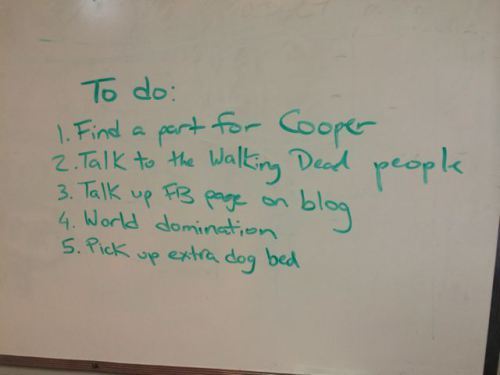 To do:
1. Find a part for Cooper
2. Talk to the Walking Dead people
3. Talk up FB page on blog
4. World domination
5. Pick up extra dog bed